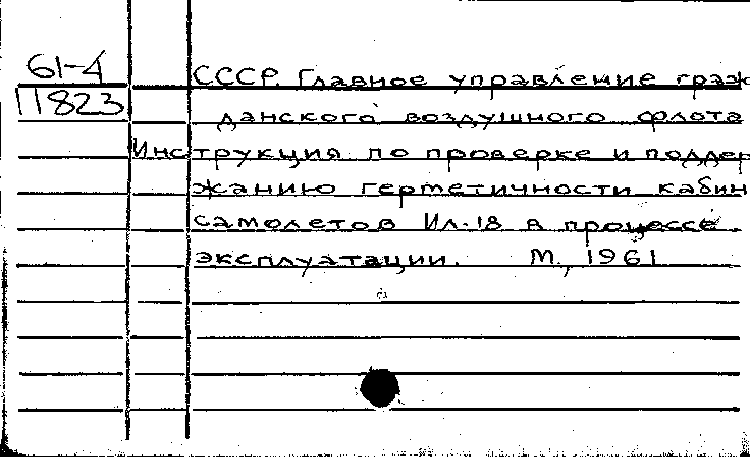 61-4
11823
СССР. Главное управление граж
данского воздушного флота
Инструкция по проверке и поддер
жанию герметичности кабин
самолетов Ил-18 в процессе
эксплуатации. М., 1961